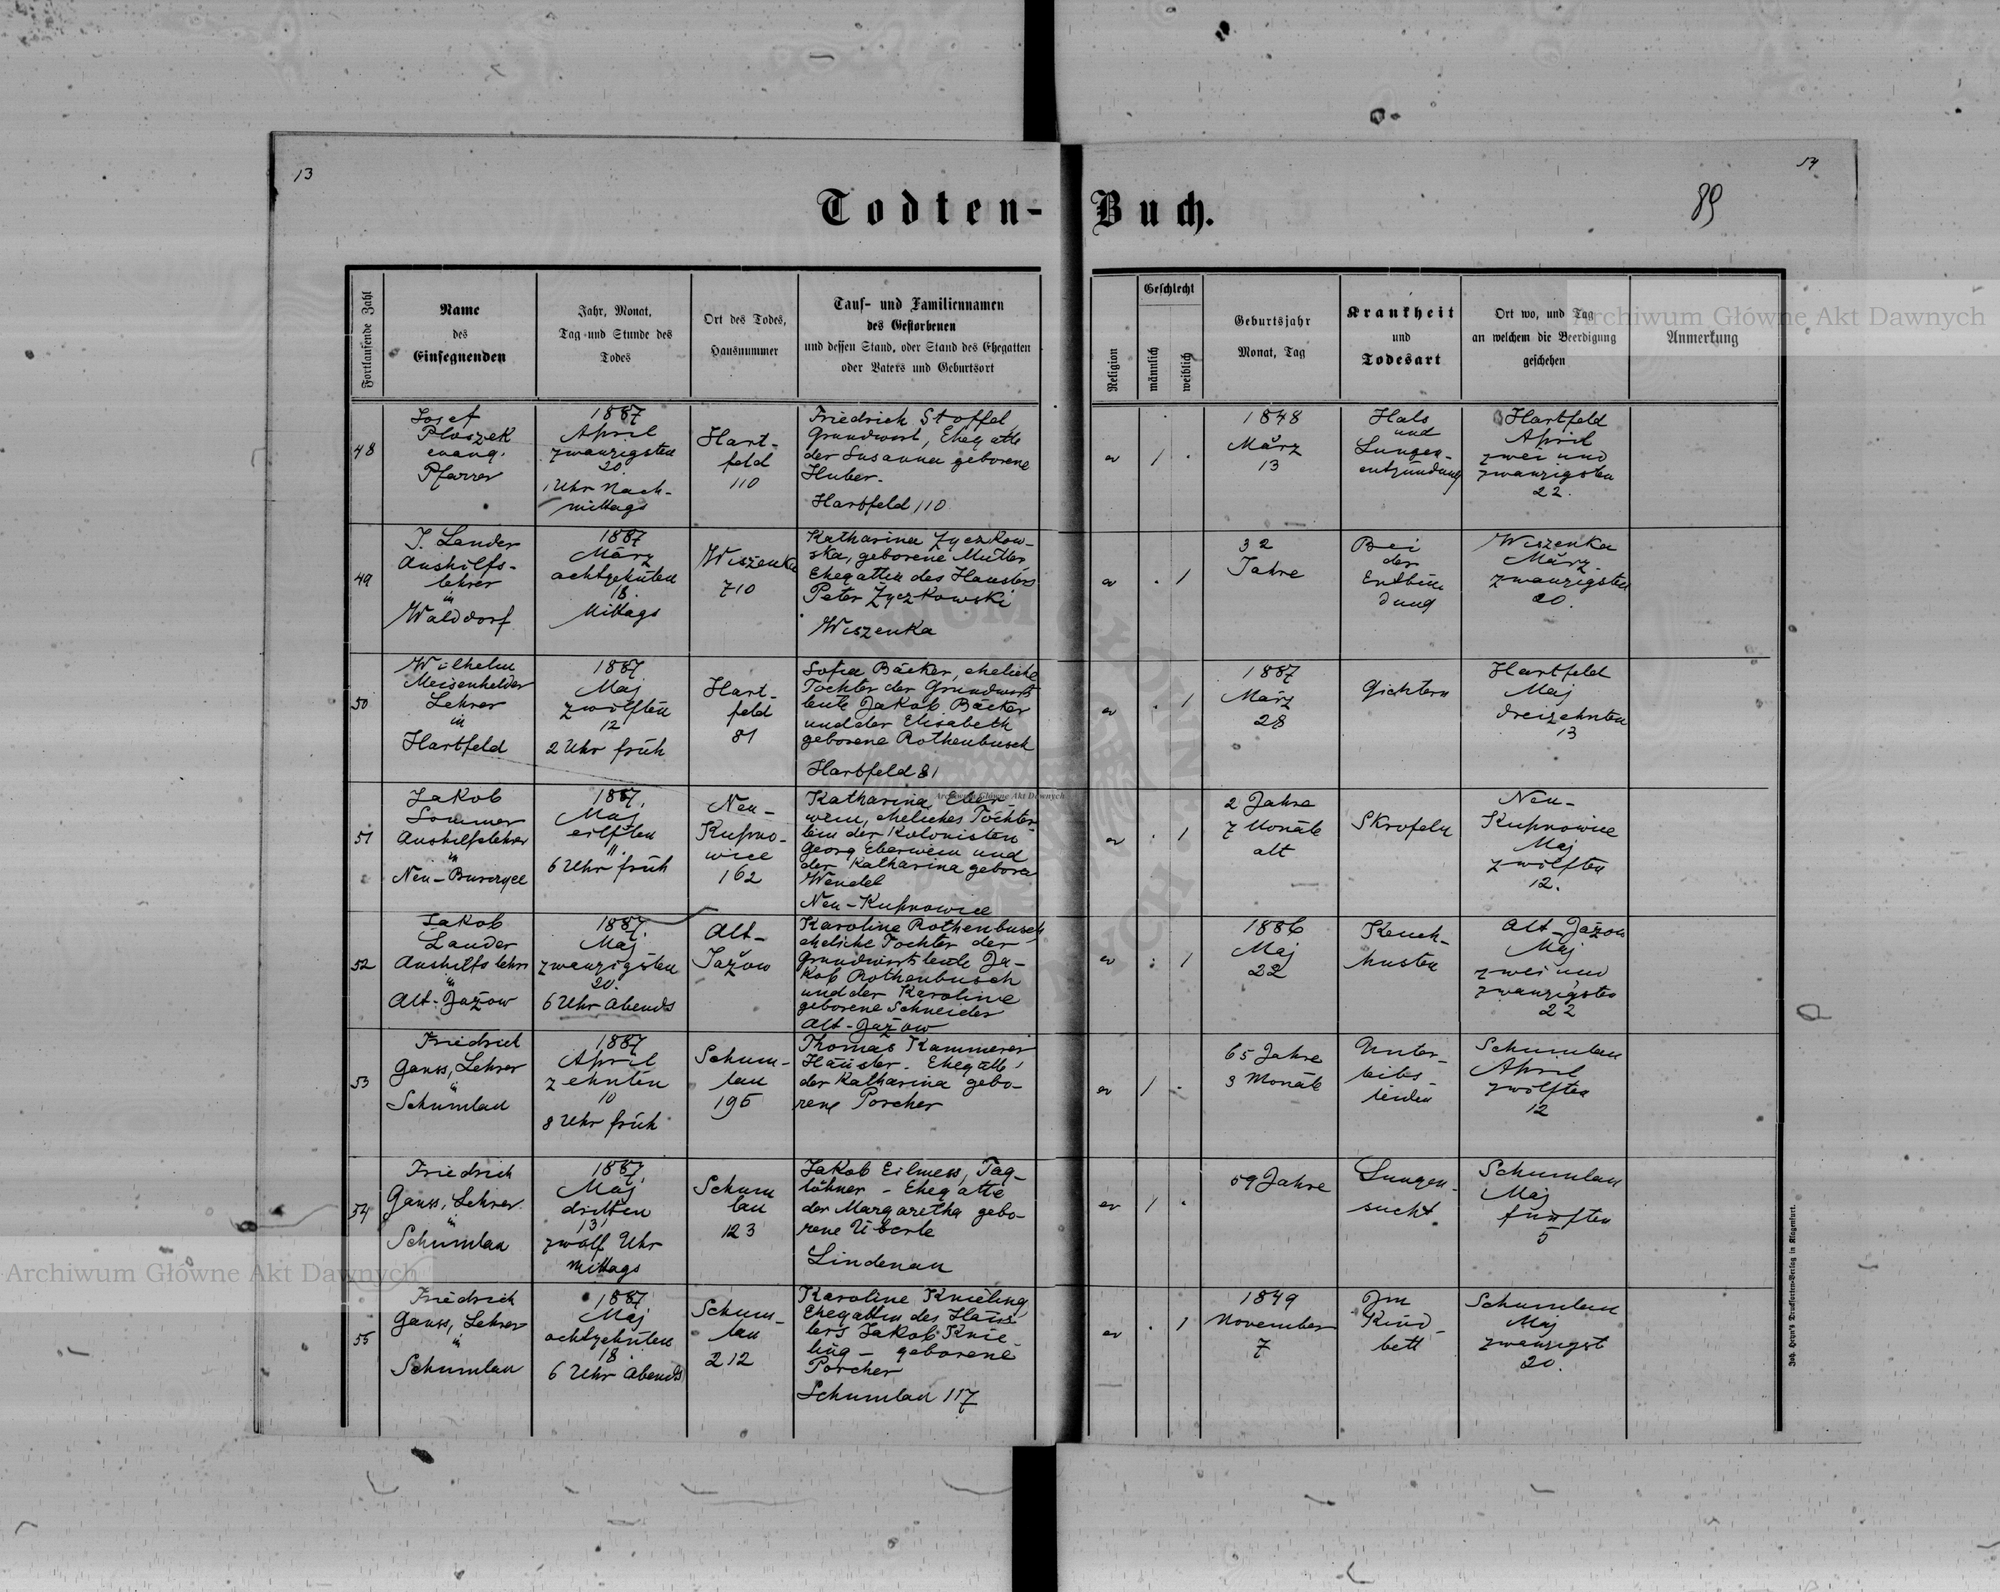 13
54
89
Todten-Buch.
Fortlaufende Zahl
Name
des
Einsegnenden
Jahr, Monat,
Tag und Stunde des
Todes
Ort des Todes,
Hausnummer
Tauf- und Familiennamen
des Gestorbenen
und dessen Stand, oder Stand des Ehegatten
oder Vaters und Geburtsort
Religion
Geschlecht
männlich
weiblich
Geburtsjahr
Monat, Tag
Krankheit
und
Todesart
Ort wo, und Tag
an welchem die Beerdigung
geschehen
Anmerkung
48
Josef
Ploszek
evang.
Pfarrer
1887
April
zwanzigsten
20.
1 Uhr Nach-
mittags
Hart-
feld
110
Friedrich Stoffel,
Grundwirt, Ehegatte
der Susanna geborene
Huber.
Hartfeld 110
ev
1
1848
März
13
Hals
und
Lungen-
entzündung
Hartfeld
April
zwei und
zwanzigsten
22.
49
J. Lander
Aushilfs-
lehrer
in
Walddorf
1887
März
achtzehnten
18.
Mittags
Wiszenka
710
Katharina Zyczkow-
ska, geborene Mutter
Ehegattin des Häuslers
Peter Zyczkowski
Wiszenka
ev
1
32
Jahre
Bei
der
Entbin
dung
Wiszenka
März
zwanzigsten
20.
50
Wilhelm
Meisenhelder
Lehrer
in
Hartfeld
1887
Maj
zwölften
12
2 Uhr früh
Hart-
feld
81
Sofia Bäcker, eheliche
Tochter der Grundwirts
leute Jakob Bäcker
und der Elisabeth
geborene Rothenbusch
Hartfeld 81
ev
1
1887
März
28
Gichtern
Hartfeld
Maj
dreizehnten
13
51
Jakob
Sommer
Aushilfslehrer
in
1887.
Maj
eilften
11.
6 Uhr früh
Neu-
Kupno-
wice
162
Katharina Eber-
wein, eheliches Töchter-
lein der Kolonisten
Georg Eberwein und
der Katharina geborene
Wendel
Neu-Kupnowice
ev
1
2 Jahre
7 Monate
alt
Skrofeln
Neu-
Kupnowice
Maj
zwölften
12.
52
Jakob
Lander
Aushilfslehrer
in
Alt-Jażow
1887.
Maj
zwanzigsten
20.
6 Uhr Abends
Alt-
Jażow
Karoline Rothenbusch
eheliche Tochter der
Grundwirtsleute Ja-
kob Rothenbusch
und der Karoline
geborene Schneider
Alt-Jażow
ev
1
1886
Maj
22
Keuch-
husten
Alt-Jażow
Maj
zwei und
zwanzigsten
22
53
Friedrich
Gauss, Lehrer
in
Schumlau
1887
April
zehnten
10
8 Uhr früh
Schum-
lau
195
Thomas Kammerer
Häusler. Ehegatte
der Katharina gebo-
rene Porcher
ev
1
65 Jahre
3 Monate
Unter-
leibs-
leiden
Schumlau
April
zwölften
12
54
Friedrich
Gauss, Lehrer
in
Schumlau
1887,
Maj
dritten
zwölf Uhr
Mittags
Schum
lau
123
Jakob Eilmess, Tag-
löhner - Ehegatte
der Margaretha gebo-
rene Uiberle
Lindenau
ev
1
59 Jahre
Lungen-
sucht
Schumlau
Maj
fünften
5
55
Friedrich
Gauss, Lehrer
in
Schumlau
1887
Maj
achtzehnten
18.
6 Uhr Abends
Schum-
lau
212
Karoline Knieling
Ehegattin des Häus-
lers Jakob Knie-
ling - geborene
Porcher
Schumlau 117
ev
1
1849
November
7
Im
Kind-
bett
Schumlau
Maj
zwanzigst
20.
Joh. Heyn's Drucksorten-Verlag in Klagenfurt.
Archiwum Główne Akt Dawnych
Archiwum Główne Akt Dawnych
Archiwum Główne Akt Dawnych